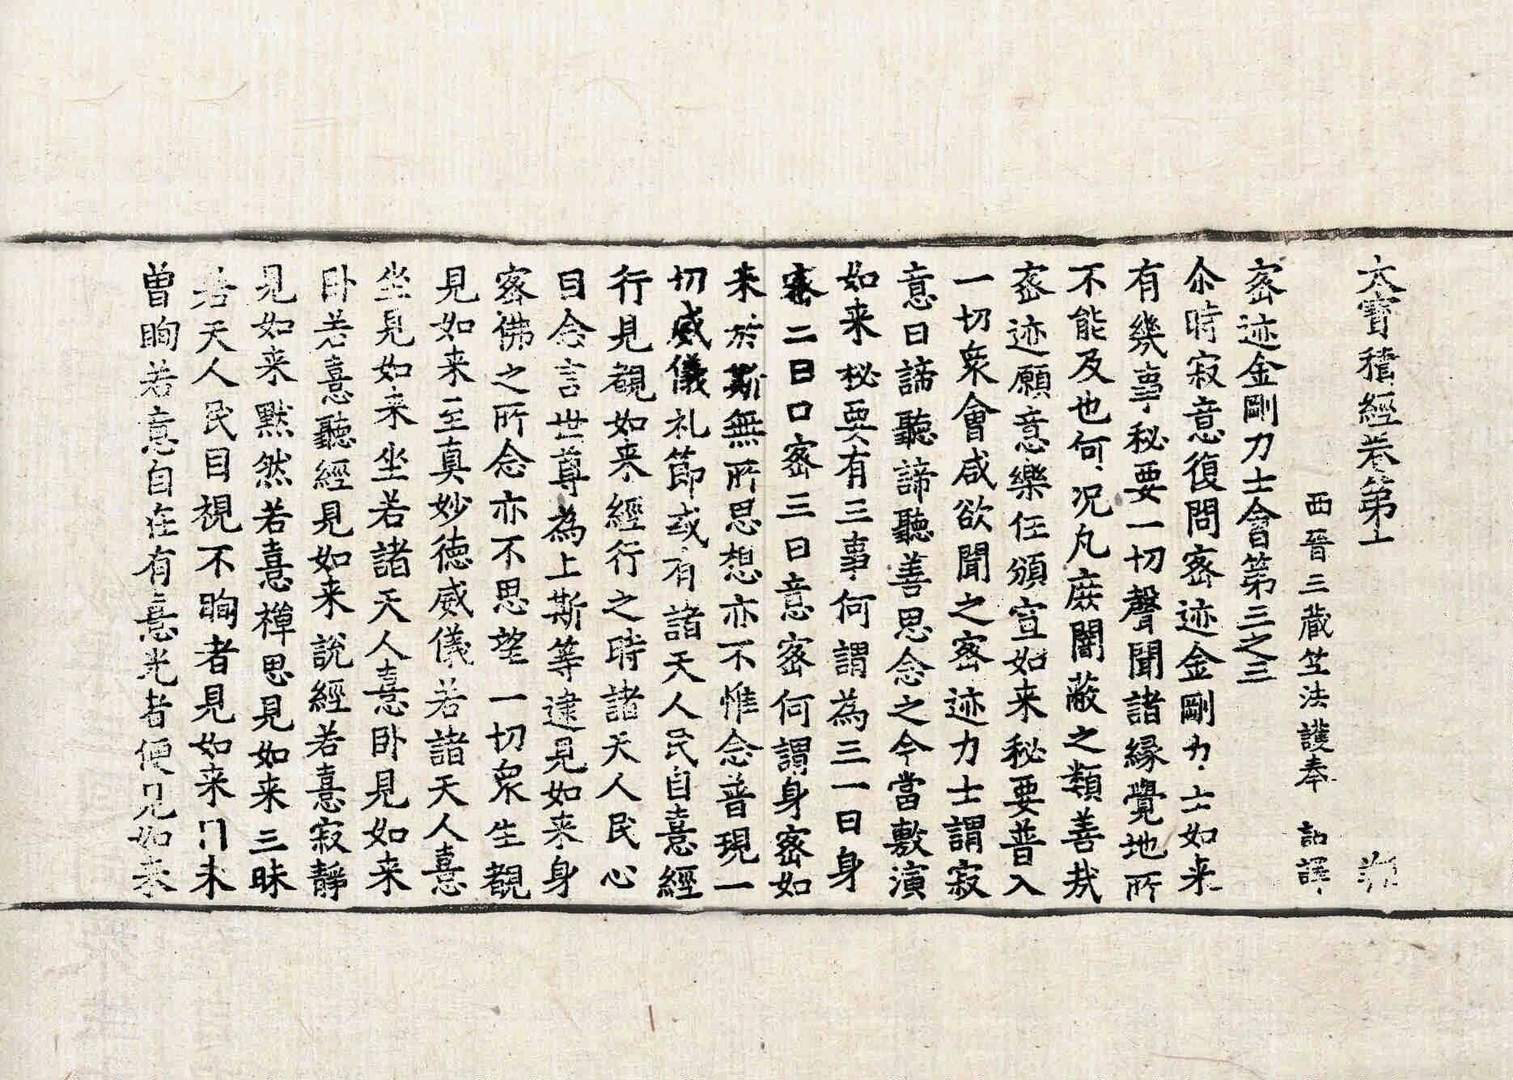 大寶積經卷第十
西晉三藏竺法護奉 詔譯
宻迹金剛力士會第三之三
尒時寂意復問宻迹金剛力士如来
有幾事秘要一切聲聞諸緣覺地所
不能及也何况凡庶闇蔽之類善㢤
宻迹願意樂任頒宣如来秘要普入
一切衆會咸欲聞之宻迹力士謂寂
意曰諦聽諦聽善思念之今當敷演
如来秘要有三事何謂為三一曰身
宻二曰口宻三曰意宻何謂身宻如
来於斯無所思想亦不惟念普現一
切威儀礼節或有諸天人民自憙經
行見覩如来經行之時諸天人民心
自念言世尊為上斯等逮見如来身
宻佛之所念亦不思望一切衆生覩
見如来至真妙徳威儀若諸天人憙
坐見如来坐若諸天人憙卧見如来
卧若憙聽經見如来說經若憙寂靜
見如来默然若憙禅思見如来三昧
若天人民目視不眴者見如来目未
曽眴若意自在有憙光者便見如来